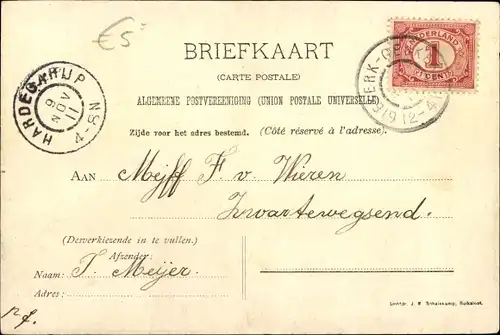 €5
BRIEFKAART
(CARTE POSTALE)
ALGEMEENE POSTVEREENIGING (UNION POSTALE UNIVERSELLE)
Zijde voor het adres bestemd. (Côté réservé à l'adresse).
NEDERLAND
1
CENT
HARDEGARIJP
9 NOV 11
4-8N
12-4
AAN Mejff F. v. Wieren
Zwartewegsend.
(Desverkiezende in te vullen).
Afzender:
Naam: T. Meijer.
Adres: